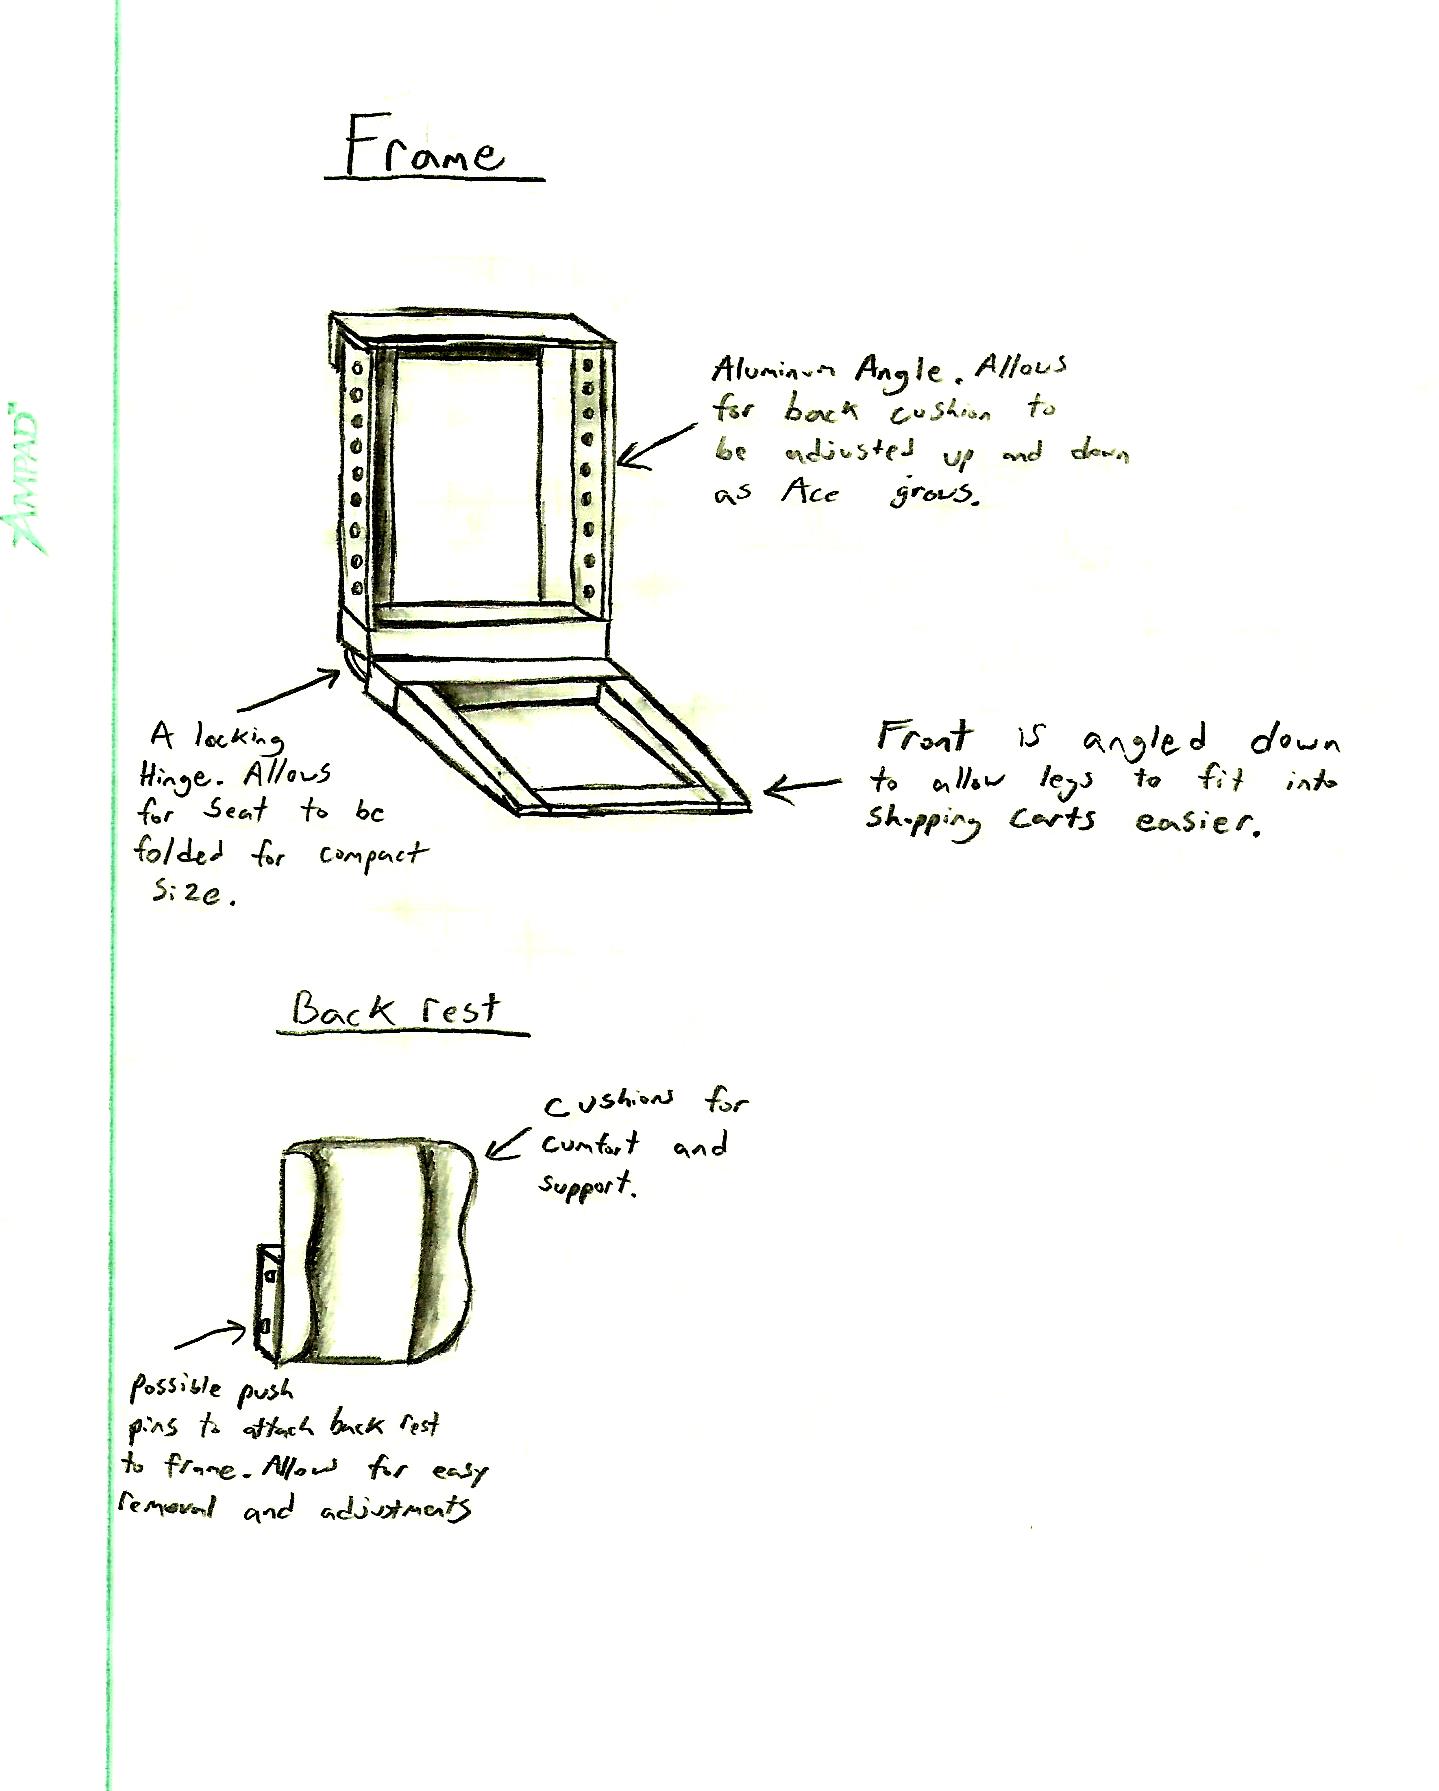 AMPAD™
Frame
Aluminum Angle. Allows
for back cushion to
be adjusted up and down
as Ace grows.
A locking
Hinge. Allows
for seat to be
folded for compact
size.
Front is angled down
to allow legs to fit into
shopping carts easier.
Back rest
Cushions for
cumfort and
support.
Possible push
pins to attach back rest
to frame. Allows for easy
removal and adjustments